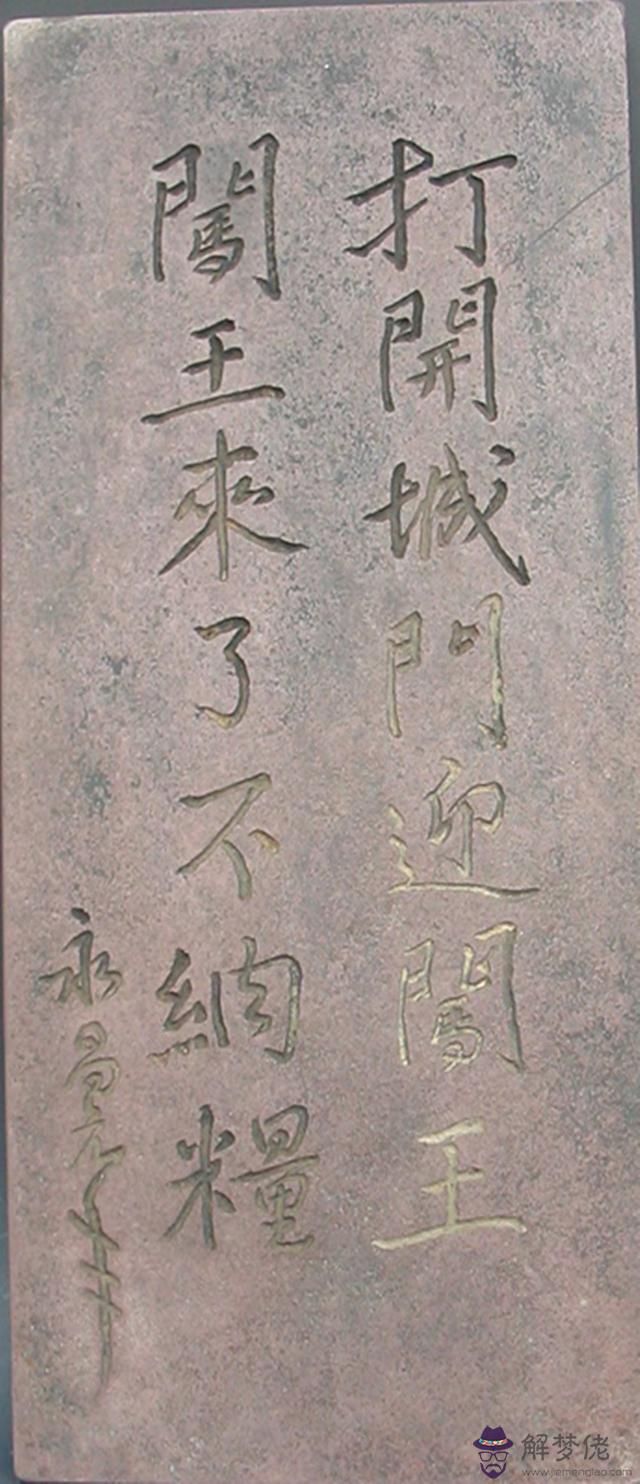 打開城門迎闖王
闖王來了不納糧
永昌元年
解梦佬
www.jiemenglao.com